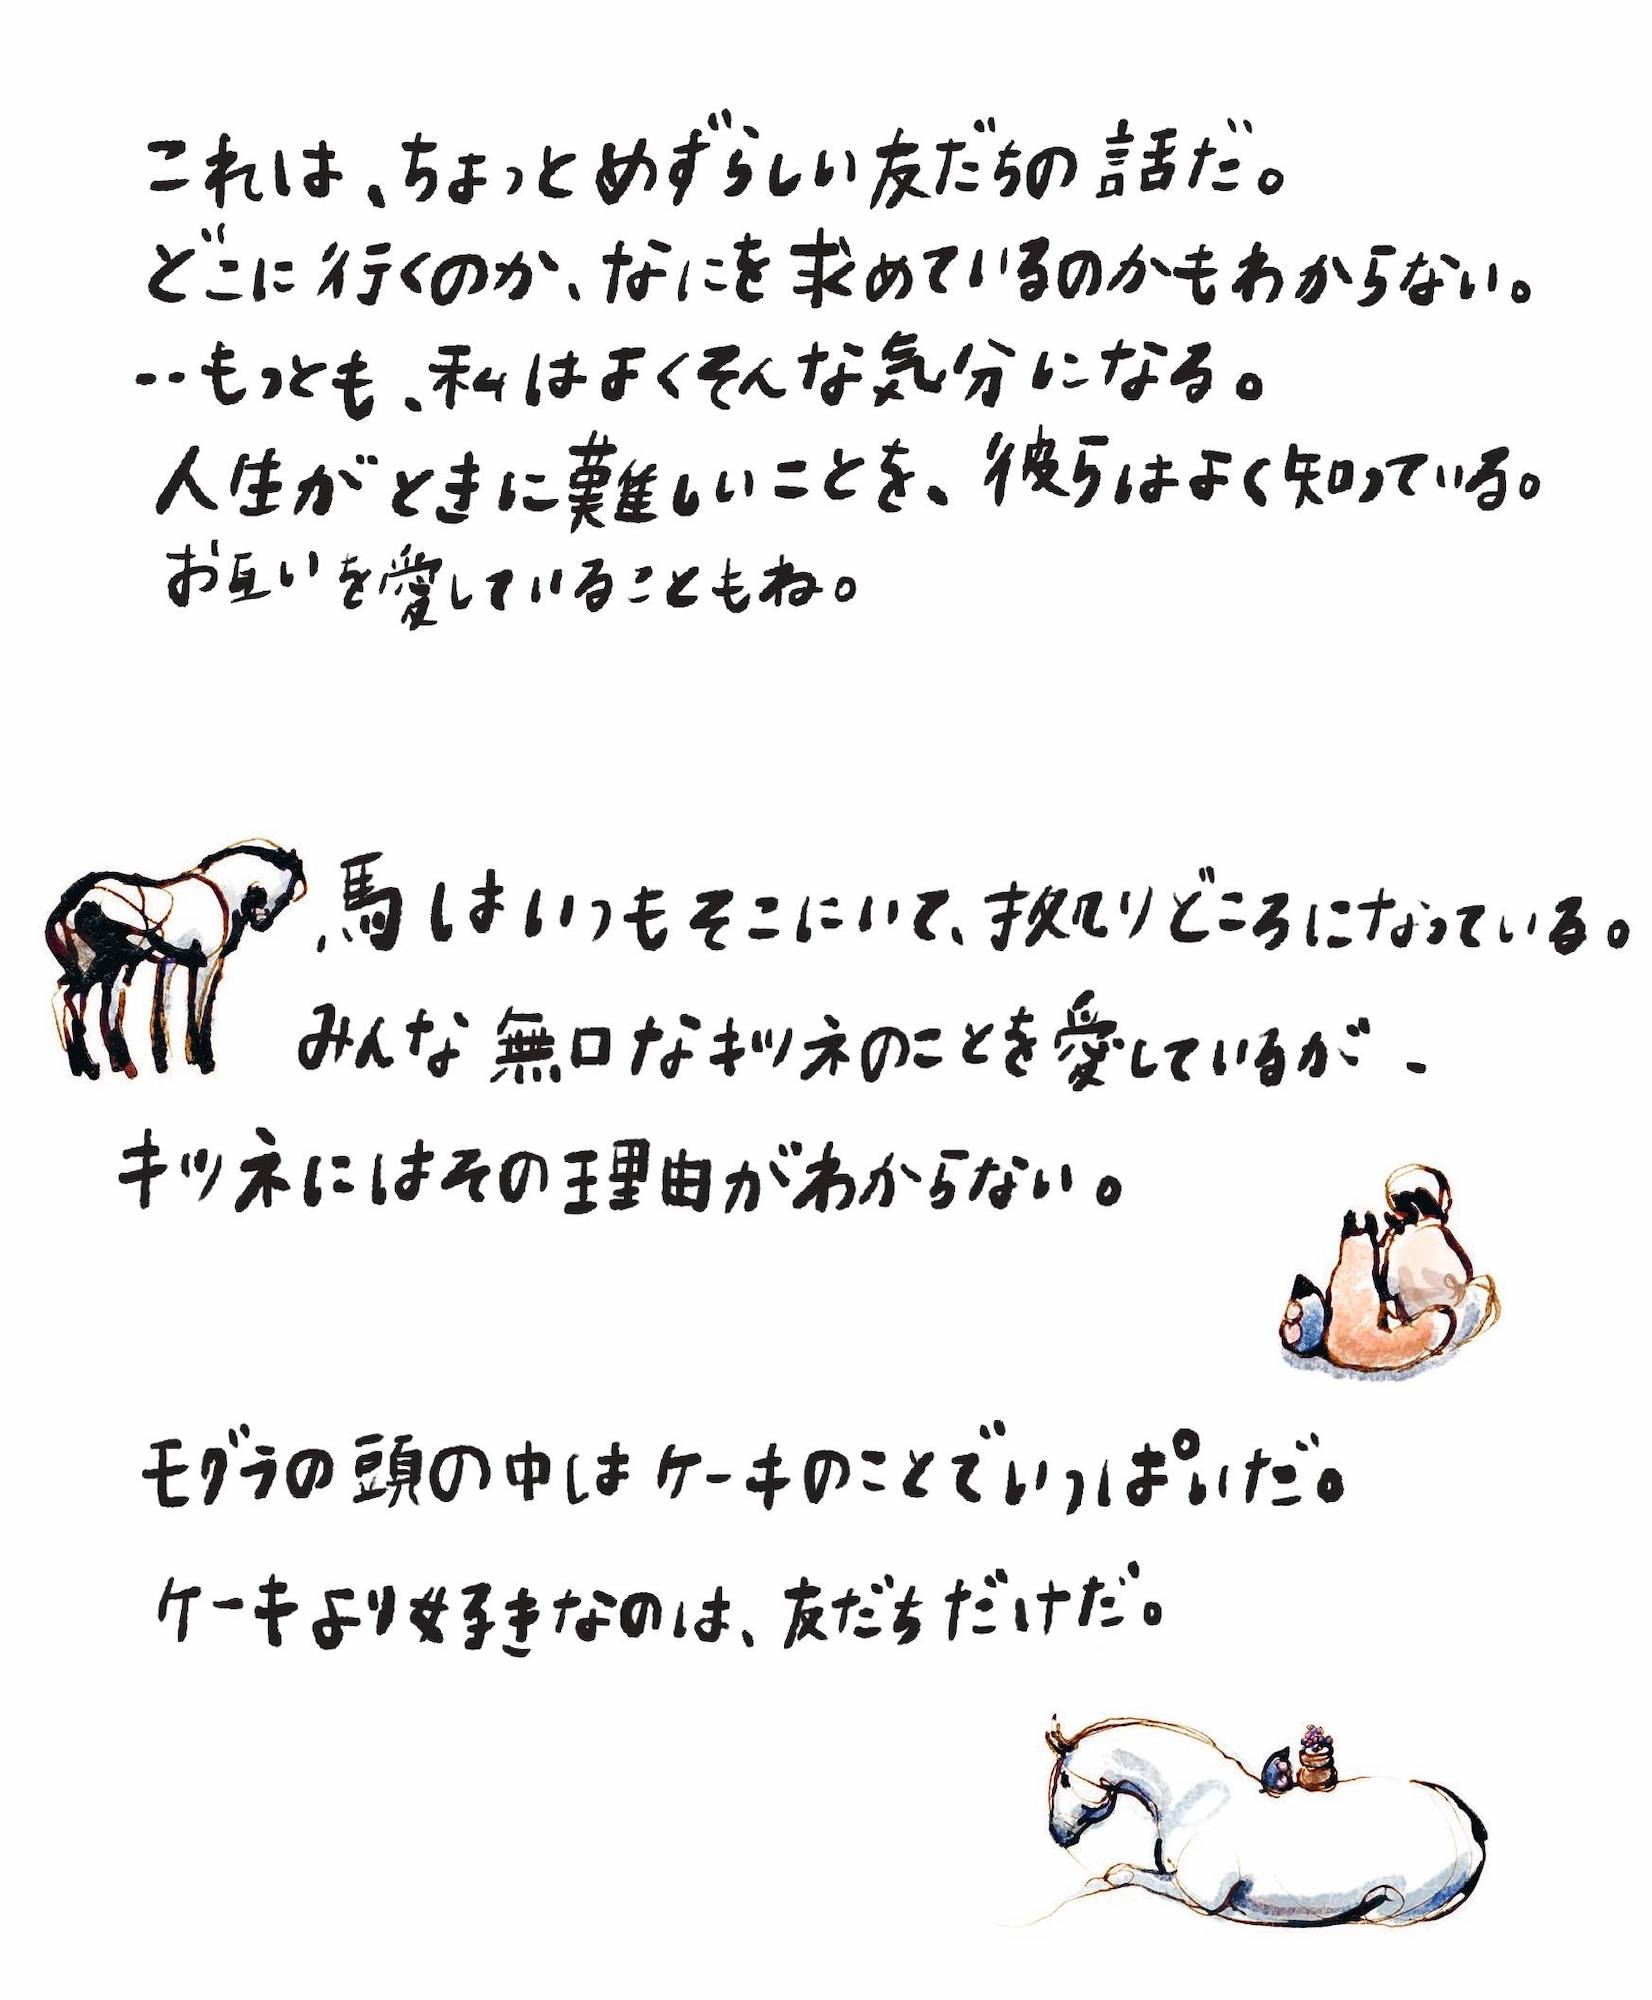 これは、ちょっとめずらしい友だちの話だ。
どこに行くのか、なにを求めているのかもわからない。
‥もっとも、私はよくそんな気分になる。
人生がときに難しいことを、彼らはよく知っている。
お互いを愛していることもね。
馬はいつもそこにいて、拠りどころになっている。
みんな無口なキツネのことを愛しているが、
キツネにはその理由がわからない。
モグラの頭の中はケーキのことでいっぱいだ。
ケーキより好きなのは、友だちだけだ。